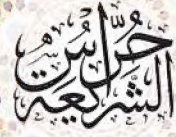 حُرَّاسُ
الشَّرِيعَةِ